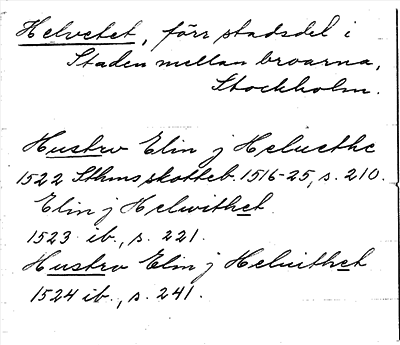 Helvetet, förr stadsdel i
Staden mellan broarna,
Stockholm.
Hustrv Elin j Heluethe
1522 Sthms skotteb. 1516-25, s. 210.
Elin j Helwithet
1523 ib., s. 221.
Hustrv Elin j Heluithet
1524 ib., s. 241.